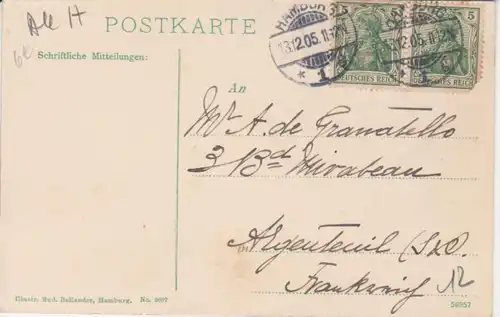 POSTKARTE
Schriftliche Mitteilungen:
HAMBURG
13.12.05. 11-12V
* 1
5
5
DEUTSCHES REICH
DEUTSCHES REICH
An
Mr A. de Granatello
3 Bd Mirabeau
Argenteuil (S&O.
Frankreich
12
Illustr. Rud. Bellander, Hamburg. No. 9097
58957